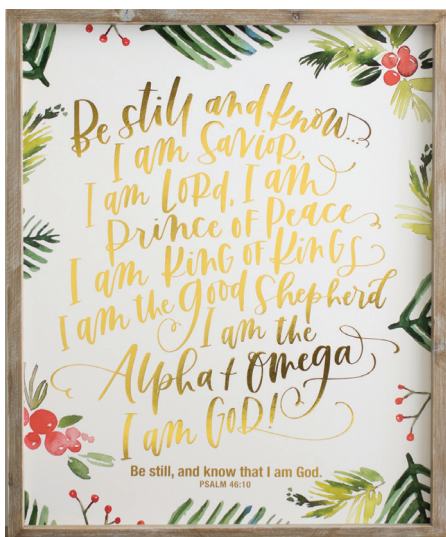 Be still and know...
I am Savior,
I am Lord, I am
Prince of Peace
I am King of Kings
I am the good Shepherd
I am the
Alpha + Omega
I am GOD!
Be still, and know that I am God.
PSALM 46:10